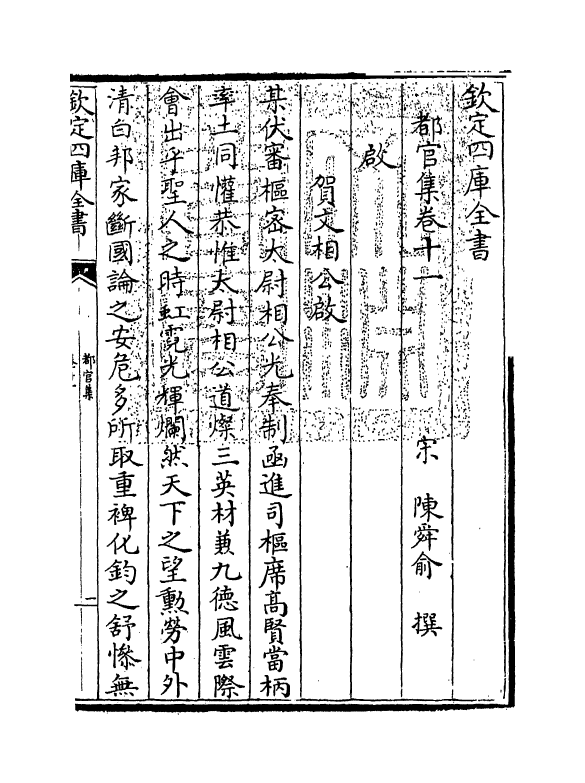 欽定四庫全書
都官集卷十一
宋 陳舜俞 撰
啟
賀文相公啟
某伏審樞密太尉相公光奉制函進司樞席高賢當柄
率土同懽恭惟太尉相公道燦三英材兼九德風雲際
會出乎聖人之時虹霓光輝爛然天下之望勲勞中外
清白邦家斷國論之安危多所取重裨化鈞之舒慘無
欽定四庫全書
都官集